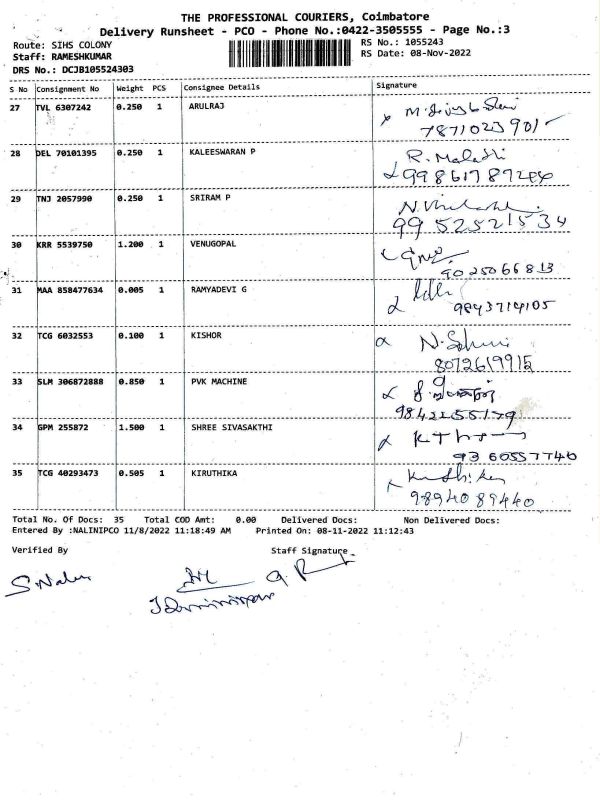 THE PROFESSIONAL COURIERS, Coimbatore
Delivery Runsheet - PCO - Phone No.:0422-3505555 - Page No.:3
Route: SIHS COLONY RS No.: 1055243
Staff: RAMESHKUMAR RS Date: 08-Nov-2022
DRS No.: DCJB105524303
S No Consignment No Weight PCS Consignee Details Signature
27 TVL 6307242 0.250 1 ARULRAJ
7871023901
28 DEL 70101395 0.250 1 KALEESWARAN P R. Malathi
29 TNJ 2057990 0.250 1 SRIRAM P
9952521534
30 KRR 5539750 1.200 1 VENUGOPAL
9025066813
31 MAA 858477634 0.005 1 RAMYADEVI G
9843714105
32 TCG 6032553 0.100 1 KISHOR
8072619915
33 SLM 306872888 0.850 1 PVK MACHINE
9842155179
34 GPM 255872 1.500 1 SHREE SIVASAKTHI
9360557740
35 TCG 40293473 0.505 1 KIRUTHIKA
9894089440
Total No. Of Docs: 35 Total COD Amt: 0.00 Delivered Docs: Non Delivered Docs:
Entered By :NALINIPCO 11/8/2022 11:18:49 AM Printed On: 08-11-2022 11:12:43
Verified By Staff Signature